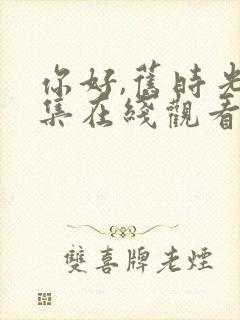 你好,舊時光
集在綫觀看
雙喜牌老煙